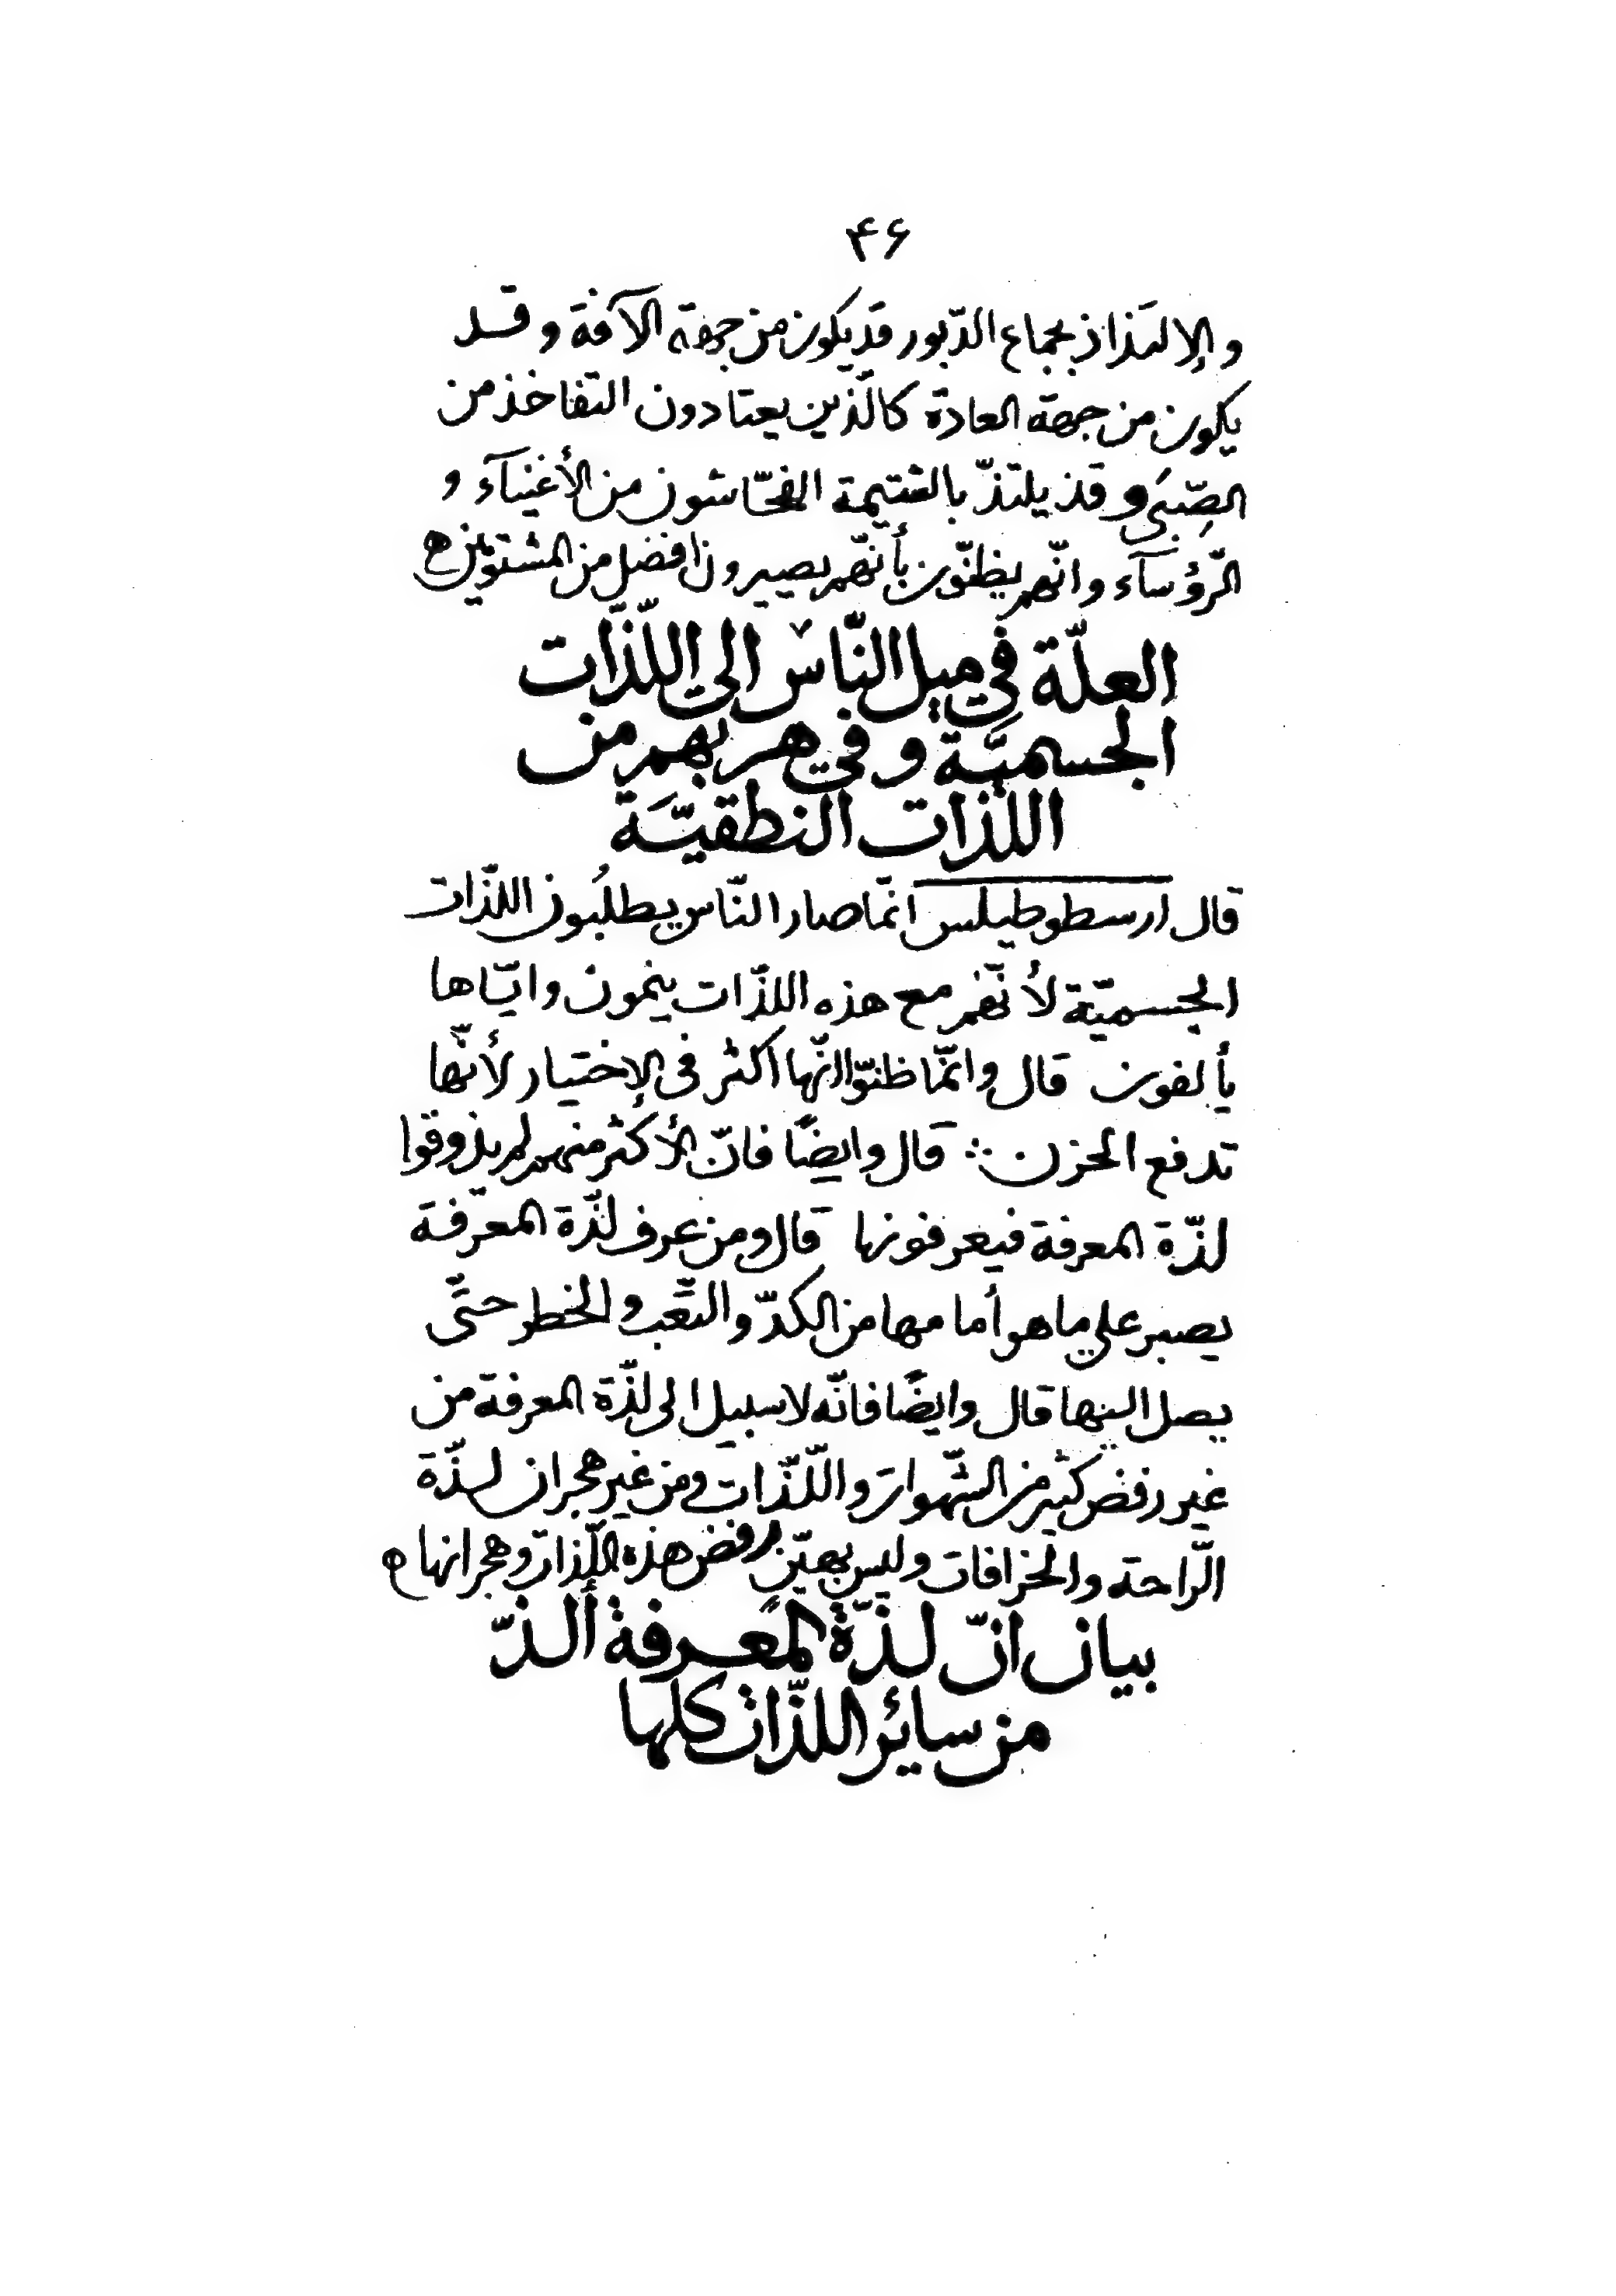 ۴۶
والإلتذاذ بجماع الدّبور قد يكون من جهة الآفة وقد
يكون من جهة العادة كالّذين يعتادون التفاخذ من
الصِّبَى وقد يلتذّ بالشتيمة الفحّاشون من الأغنيآء و
الرّؤسآء وانّهم يظنّون بأنّهم يصيرون افضل من المشتومين ه
العلّة في ميل النّاس الى اللّذّات
الجسميَّة وفي هربهم من
اللّذات النطقيّة
قال ارسطوطيلس انمّا صار النّاس يطلبُون اللّذّات
الجسميّة لأنّهم مع هذه اللذّات ينمون وايّاها
يألفون قال وانمّا ظنّوا انّها اكثر فى الإختيار لأنّها
تدفع الحزن ∴ قال وايضًا فانّ الأكثر منهم لم يذوقوا
لذّة المعرفة فيعرفونها قال ومن عرف لذّة المعرفة
يصبر علي ما هو أمامها من الكدّ والتّعب والخطر حتّى
يصل اليها قال وايضًا فانّه لا سبيل الى لذّة المعرفة من
غير رفض كثير من الشّهوات واللّذّات ومن غير هجران لذّة
الرّاحة والخرافات وليس بهيّن رفض هذه اللّذات وهجرانها ه
بيان انّ لذّة المعرفة ألذّ
من سائر اللذّات كلها